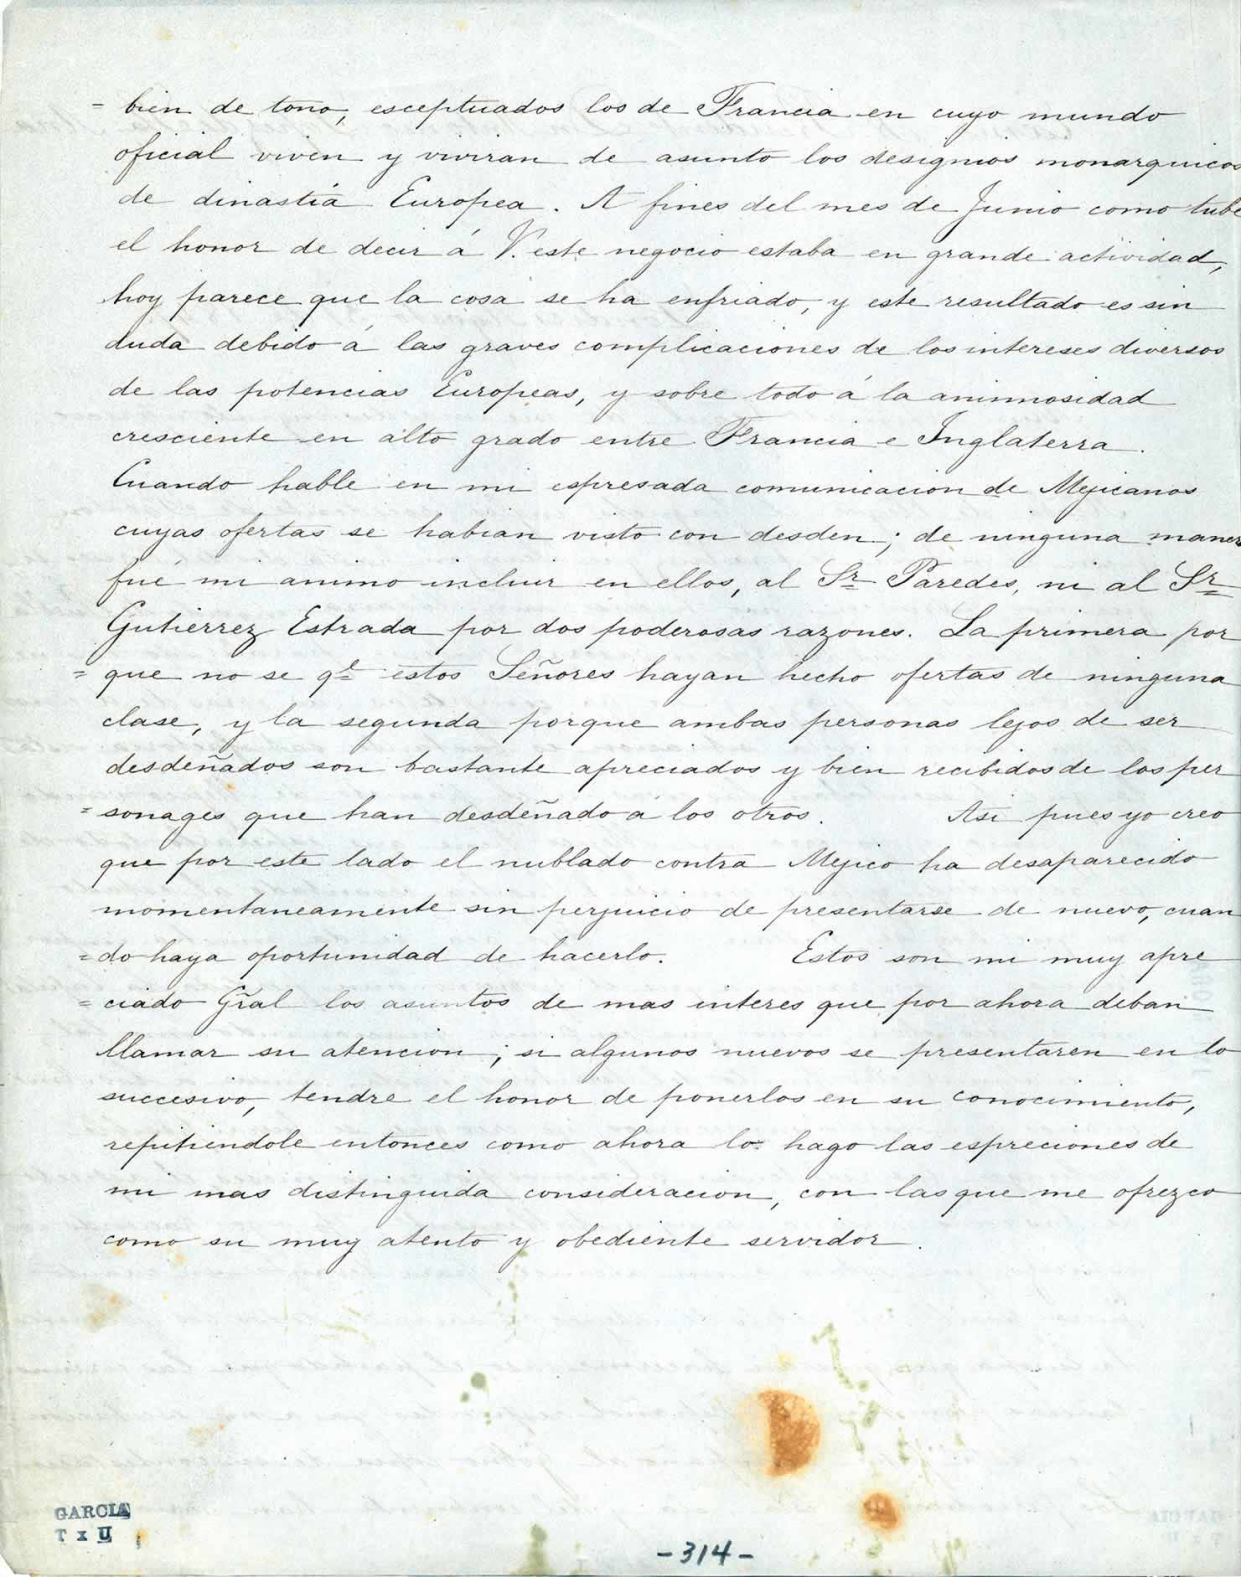 = bien de tono, esceptuados los de Francia en cuyo mundo
oficial viven y viviran de asunto los designios monarquicos
de dinastiá Europea. A fines del mes de Junio como tube
el honor de decir á V. este negocio estaba en grande actividad,
hoy parece que la cosa se ha enfriado, y este resultado es sin
duda debido á las graves complicaciones de los intereses diversos
de las potencias Europeas, y sobre todo á la animosidad
cresciente en alto grado entre Francia e Inglaterra.
Cuando hable en mi espresada comunicacion de Mejicanos
cuyas ofertas se habian visto con desden; de ninguna maner
fué mi animo incluir en ellos, al Sr Paredes, ni al Sr
Gutiérrez Estrada por dos poderosas razones. La primera por
= que no se qe estos Señores hayan hecho ofertas de ninguna
clase, y la segunda porque ambas personas lejos de ser
desdeñados son bastante apreciados y bien recibidos de los per
= sonages que han desdeñado á los otros. Asi pues yo creo
que por este lado el nublado contra Mejico ha desaparecido
momentaneamente sin perjuicio de presentarse de nuevo, cuan
= do haya oportunidad de hacerlo. Estos son mi muy apre
= ciado Gral los asuntos de mas interes que por ahora deban
llamar su atencion; si algunos nuevos se presentaren en lo
succesivo, tendre el honor de ponerlos en su conocimiento,
repitiendole entonces como ahora lo hago las espreciones de
mi mas distinguida consideracion, con las que me ofrezco
como su muy atento y obediente servidor.
GARCIA
T x U
-314-